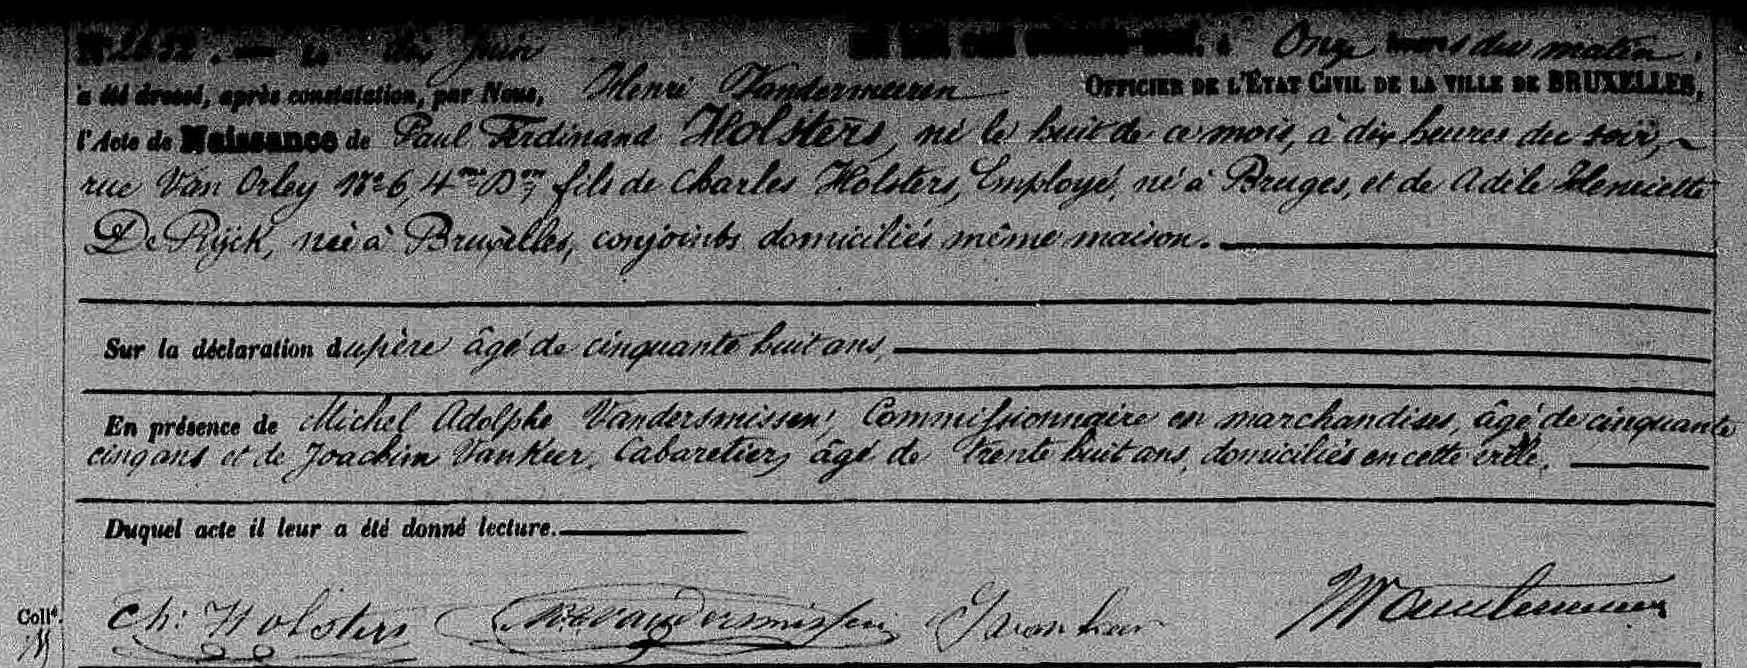 dix Juin à Onze heures du matin,
a été dressé, après constatation, par Nous, Henri Vandermeeren OFFICIER DE L'ÉTAT CIVIL DE LA VILLE DE BRUXELLES,
l'Acte de Naissance de Paul Ferdinand Holsters, né le huit de ce mois, à dix heures du soir,
rue Van Orley Nº 6, 4me Don, fils de Charles Holsters, Employé, né à Bruges, et de Adèle Henriette
De Rijck, née à Bruxelles, conjoints domiciliés même maison.
Sur la déclaration du père âgé de cinquante huit ans,
En présence de Michel Adolphe Vandersmissen, Commissionnaire en marchandises, âgé de cinquante
cinq ans et de Joachim Van Keer, Cabaretier, âgé de trente huit ans, domiciliés en cette ville.
Duquel acte il leur a été donné lecture.
Coll.é Ch: Holsters Vandersmissen